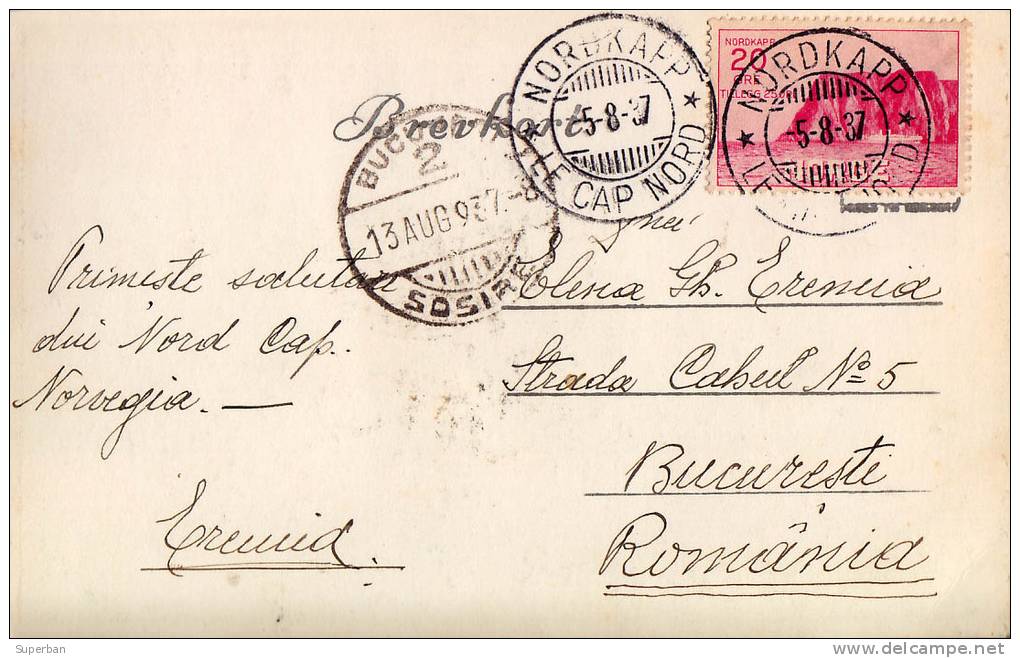 Brevkort
NORDKAPP
-5-8-37
LE CAP NORD
NORDKAPP
20
ØRE
TILLEGG 25 ØRE
NORDKAPP
-5-8-37
BUC
2
13 AUG 937.-8
SOSIR
Primeste salutari
din Nord Cap.
Norvegia. —
Eremia.
Elena Gh. Eremia
Strada Cahul No 5
Bucuresti
România
Superban
www.delcampe.net